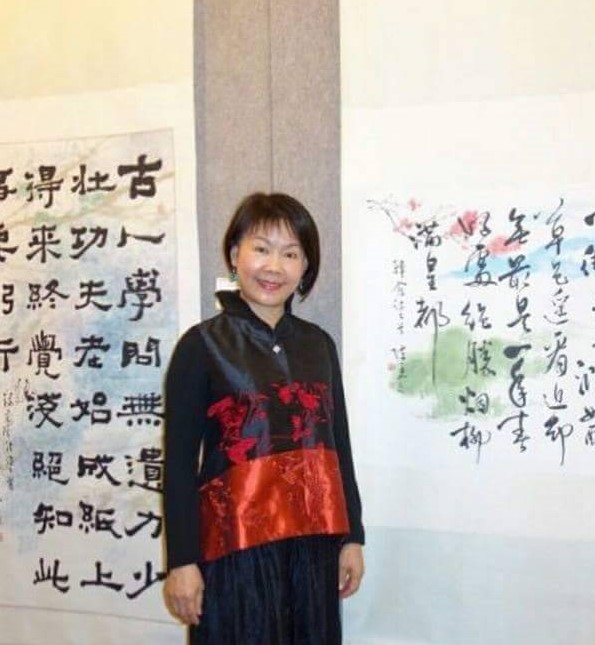 草色遙看近却
無最是一年春
好處絕勝烟柳
滿皇都
古人學問無遺力少
壯功夫老始成紙上
得來終覺淺絕知此
事要躬行